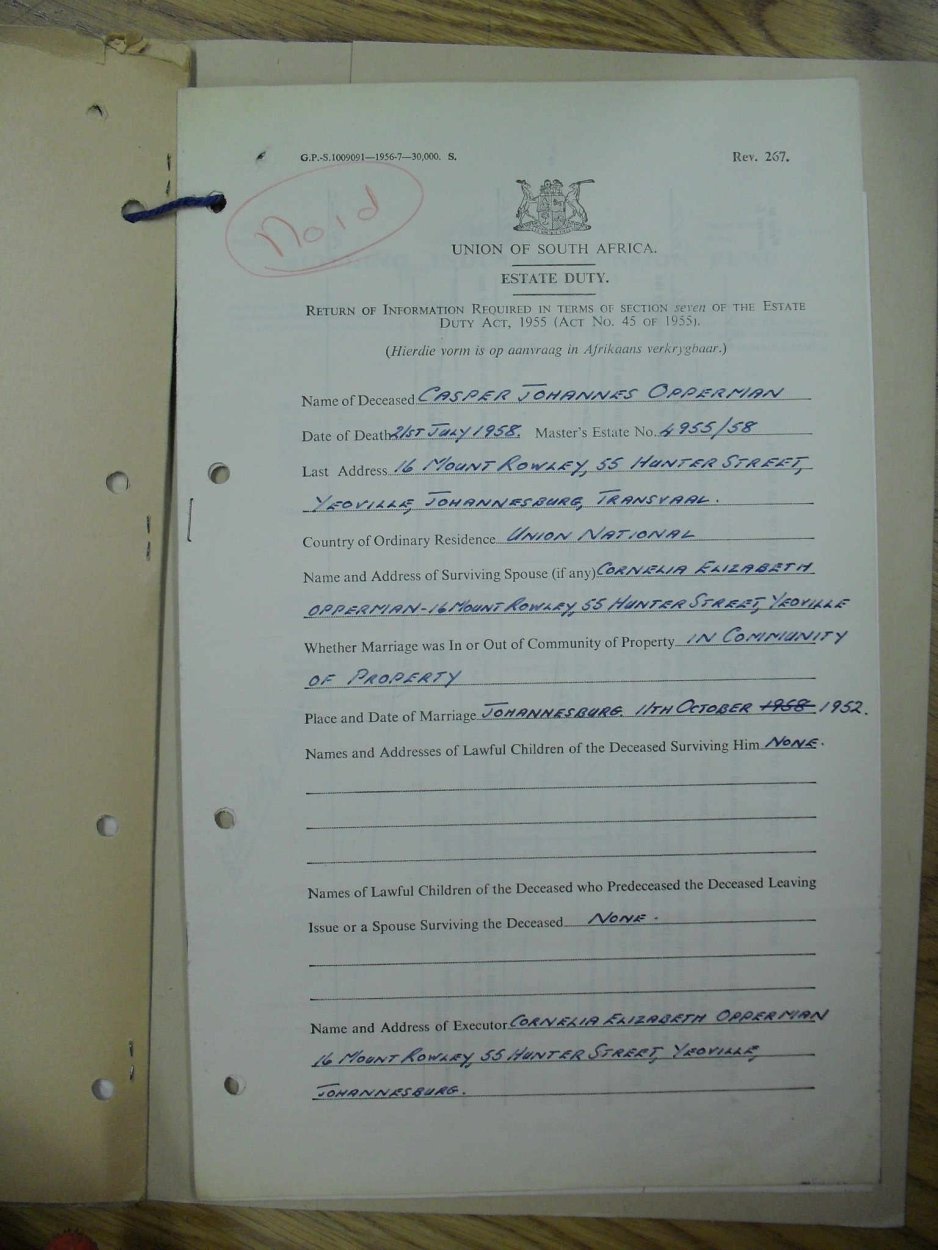 G.P.-S.1009091—1956-7—30,000. S. Rev. 267.
No 1d
UNION OF SOUTH AFRICA.
ESTATE DUTY.
RETURN OF INFORMATION REQUIRED IN TERMS OF SECTION seven OF THE ESTATE
DUTY ACT, 1955 (ACT NO. 45 OF 1955).
(Hierdie vorm is op aanvraag in Afrikaans verkrygbaar.)
Name of Deceased CASPER JOHANNES OPPERMAN
Date of Death 21ST JULY 1958. Master's Estate No. 4955/58
Last Address 16 MOUNT ROWLEY, 55 HUNTER STREET,
YEOVILLE, JOHANNESBURG, TRANSVAAL.
Country of Ordinary Residence UNION NATIONAL
Name and Address of Surviving Spouse (if any) CORNELIA ELIZABETH
OPPERMAN - 16 MOUNT ROWLEY, 55 HUNTER STREET, YEOVILLE
Whether Marriage was In or Out of Community of Property IN COMMUNITY
OF PROPERTY
Place and Date of Marriage JOHANNESBURG. 11TH OCTOBER 1958 1952.
Names and Addresses of Lawful Children of the Deceased Surviving Him NONE.
Names of Lawful Children of the Deceased who Predeceased the Deceased Leaving
Issue or a Spouse Surviving the Deceased NONE.
Name and Address of Executor CORNELIA ELIZABETH OPPERMAN
16 MOUNT ROWLEY, 55 HUNTER STREET, YEOVILLE,
JOHANNESBURG.